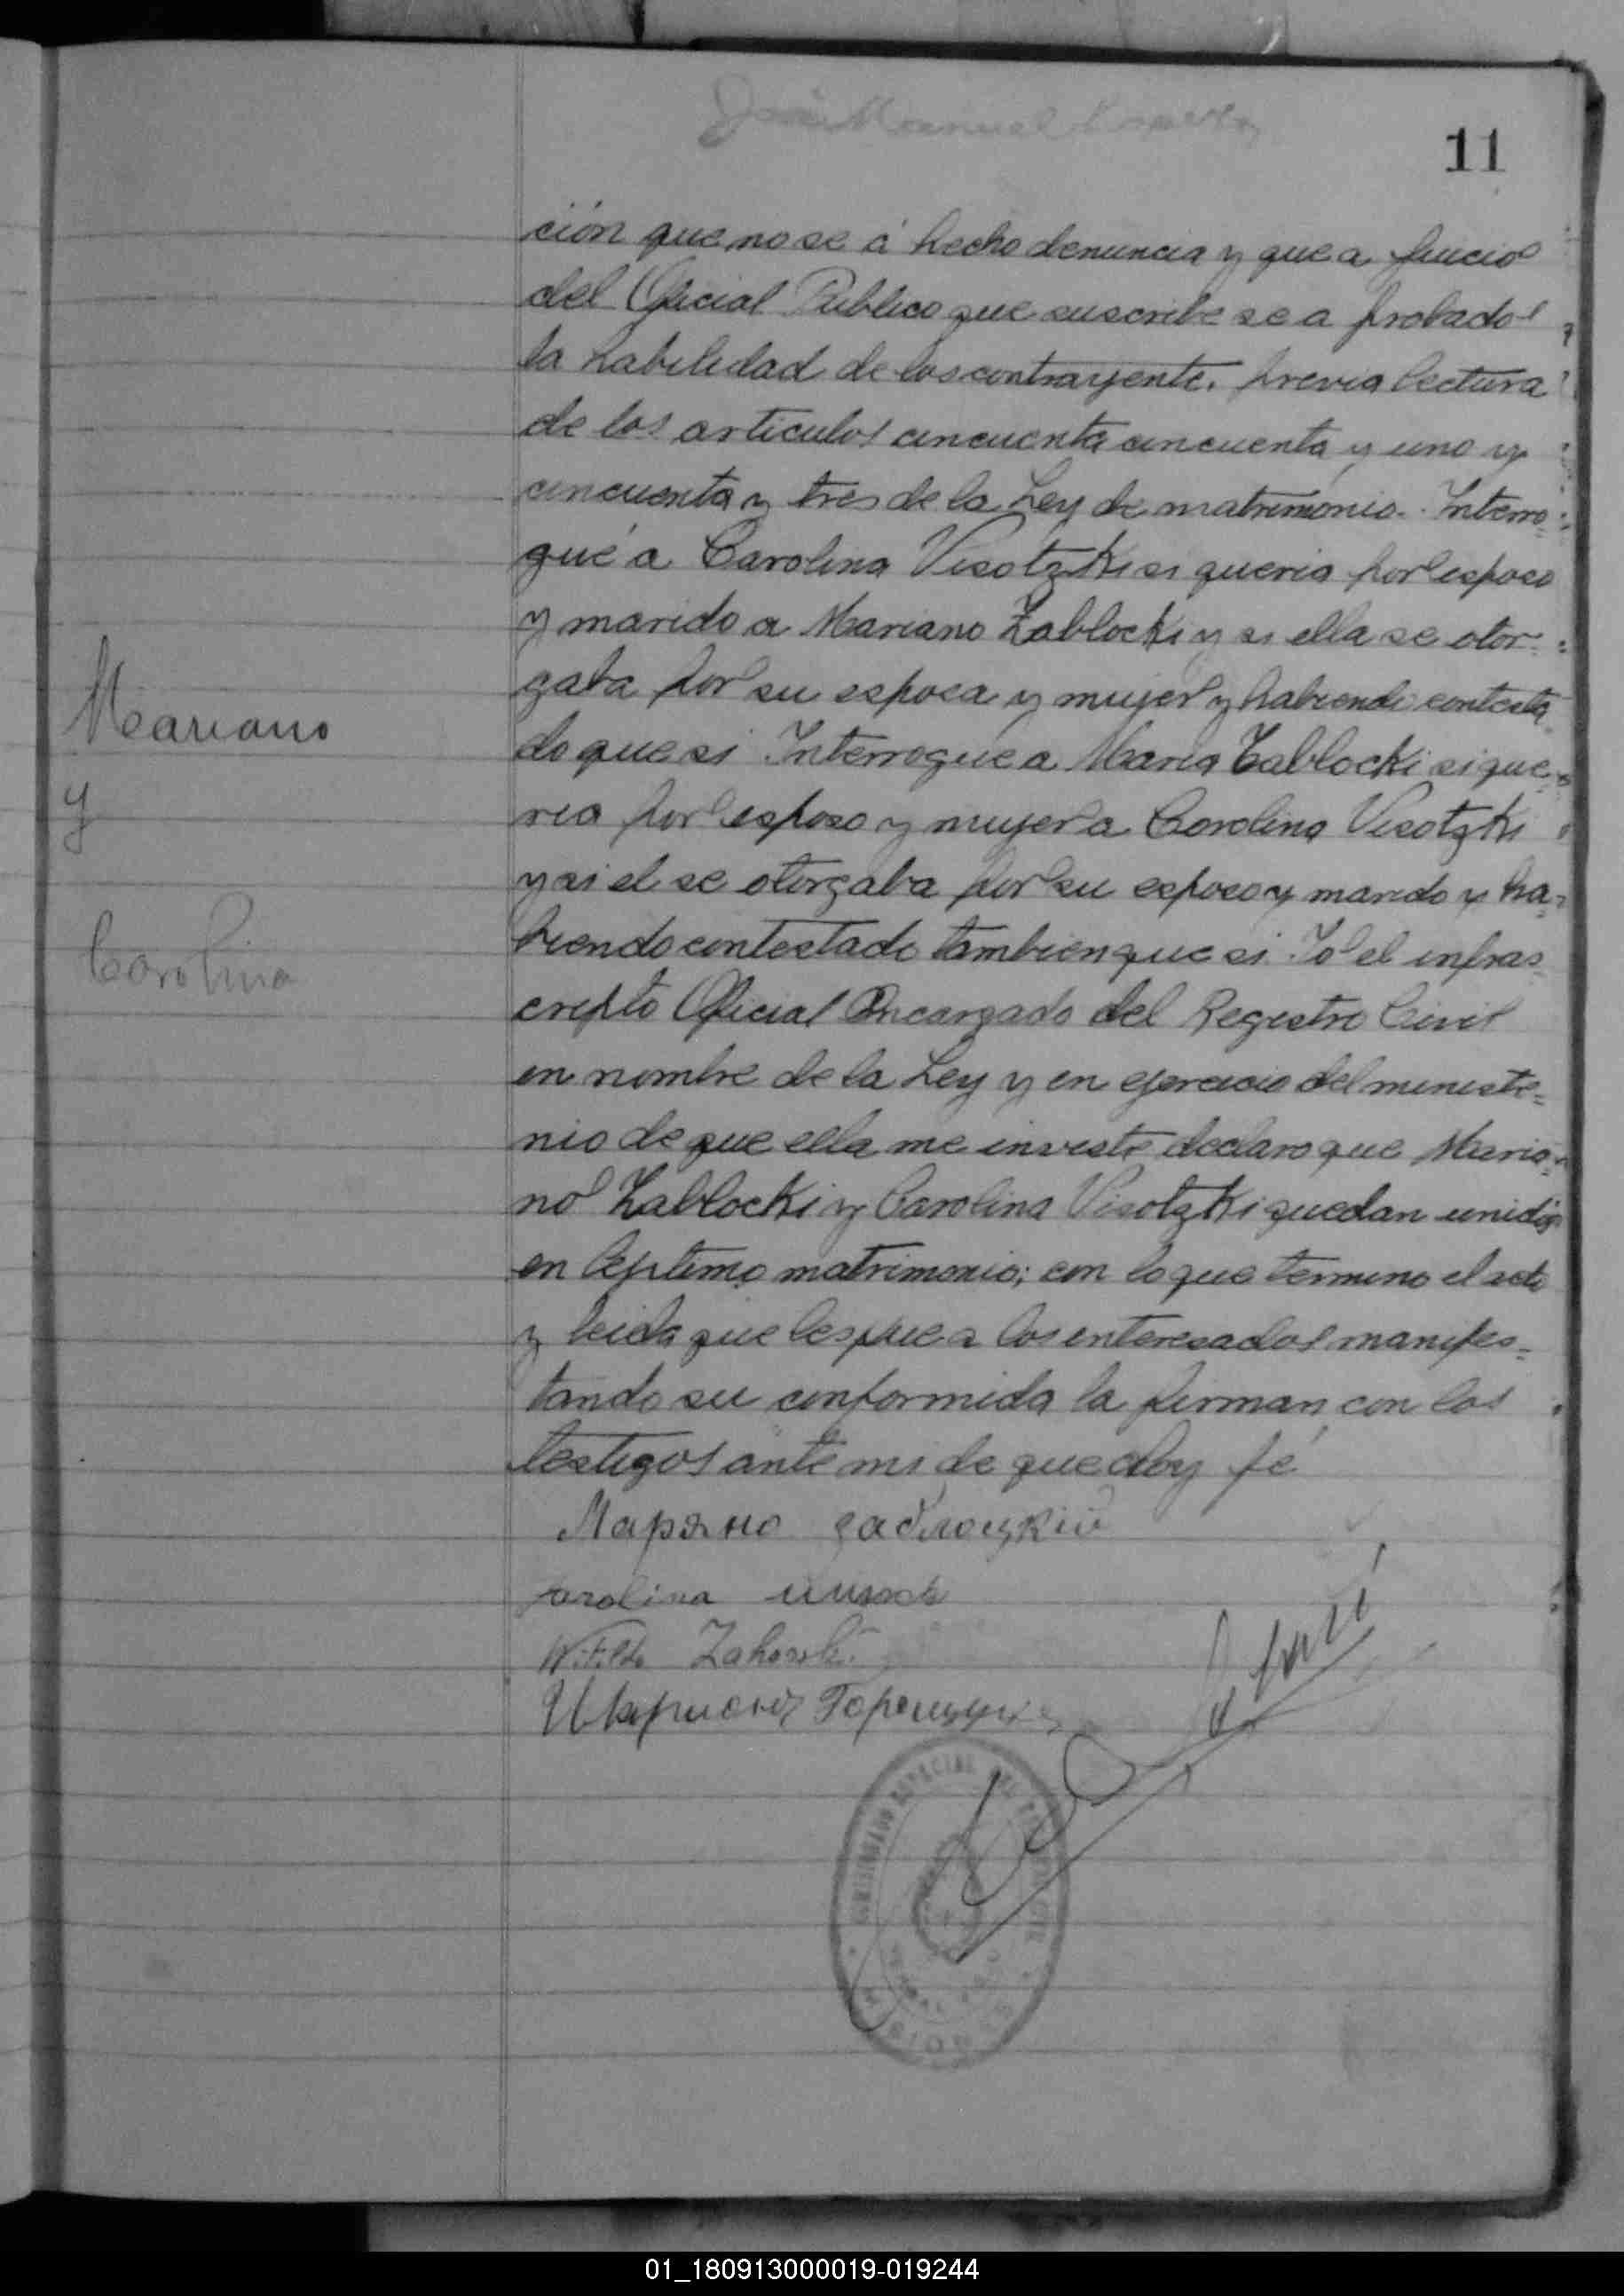 José Manuel
11
ción que no se á hecho denuncia y que a juicio
del Oficial Público que suscribe se a probado
la habilidad de los contrayente. previa lectura
de los articulos cincuenta cincuenta y uno y
cincuenta y tres de la Ley de matrimonio. Interro=
gué a Carolina Visotzki si queria por esposo
y marido a Mariano Zablocki y si ella se otor=
gaba por su esposa y mujer y habiendo contesta
do que si Interrogue a Maria Zablocki si que=
ria por esposo y mujer a Carolina Visotzki
y si el se otorgaba por su esposo y marido y ha=
biendo contestado tambien que si. Yo el infras
cripto Oficial Encargado del Registro Civil
en nombre de la Ley y en ejercicio del ministe=
rio de que ella me inviste declaro que Maria=
no Zablocki y Carolina Visotzki quedan unidos
en legitimo matrimonio; con lo que termino el acto
y leida que les fue a los interesados manifes=
tando su conformida la firman con los
testigos ante mi de que doy fé
Mariano
y
Carolina
Маряно заблоцкий
carolina
Witoldo
ESPECIAL